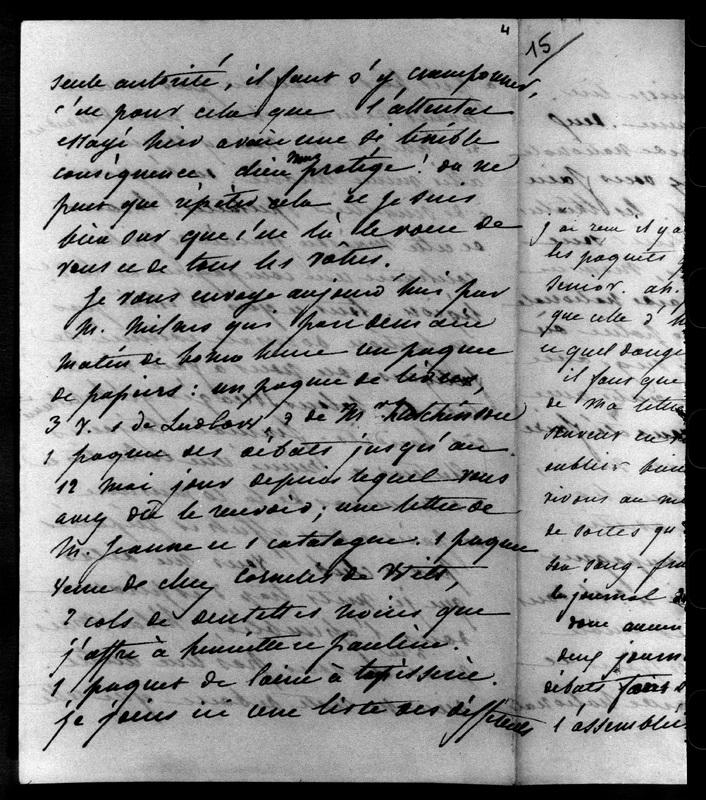 4
seule autorité, il faut s'y cramponner,
c'est pour cela que l'attentat
essayé hier avait une si terrible
conséquence. dieu nous protège! on ne
peut que répéter cela et je suis
bien sur que c'est là le vœu de
vous et de tous les vôtres.
Je vous envoye aujourd'hui par
M. qui part demain
matin de bonne heure un paquet
de papiers : un paquet de
3 v. 1 de Ludlow, 2 de Mrs Hutchinson
1 paquet des débats jusqu'au
12 mai jour depuis lequel vous
avez dû le recevoir; une lettre de
M. Jeanne et 1 catalogue. 1 paquet
venu de chez Cornelis de Witt,
2 cols de dentelles noires que
j'offre à henriette et pauline.
1 paquet de laine à tapisserie.
je joins ici une liste des différents
15
j'ai reçu il y a
les paquets
Senior. ah.
que celle d'h
et quel dange
il faut que
de ma lettre
oublier
vivons au
de sortes qu
son sang-fro
le journal
donc aucun
deux journ
débats
l'assemblé